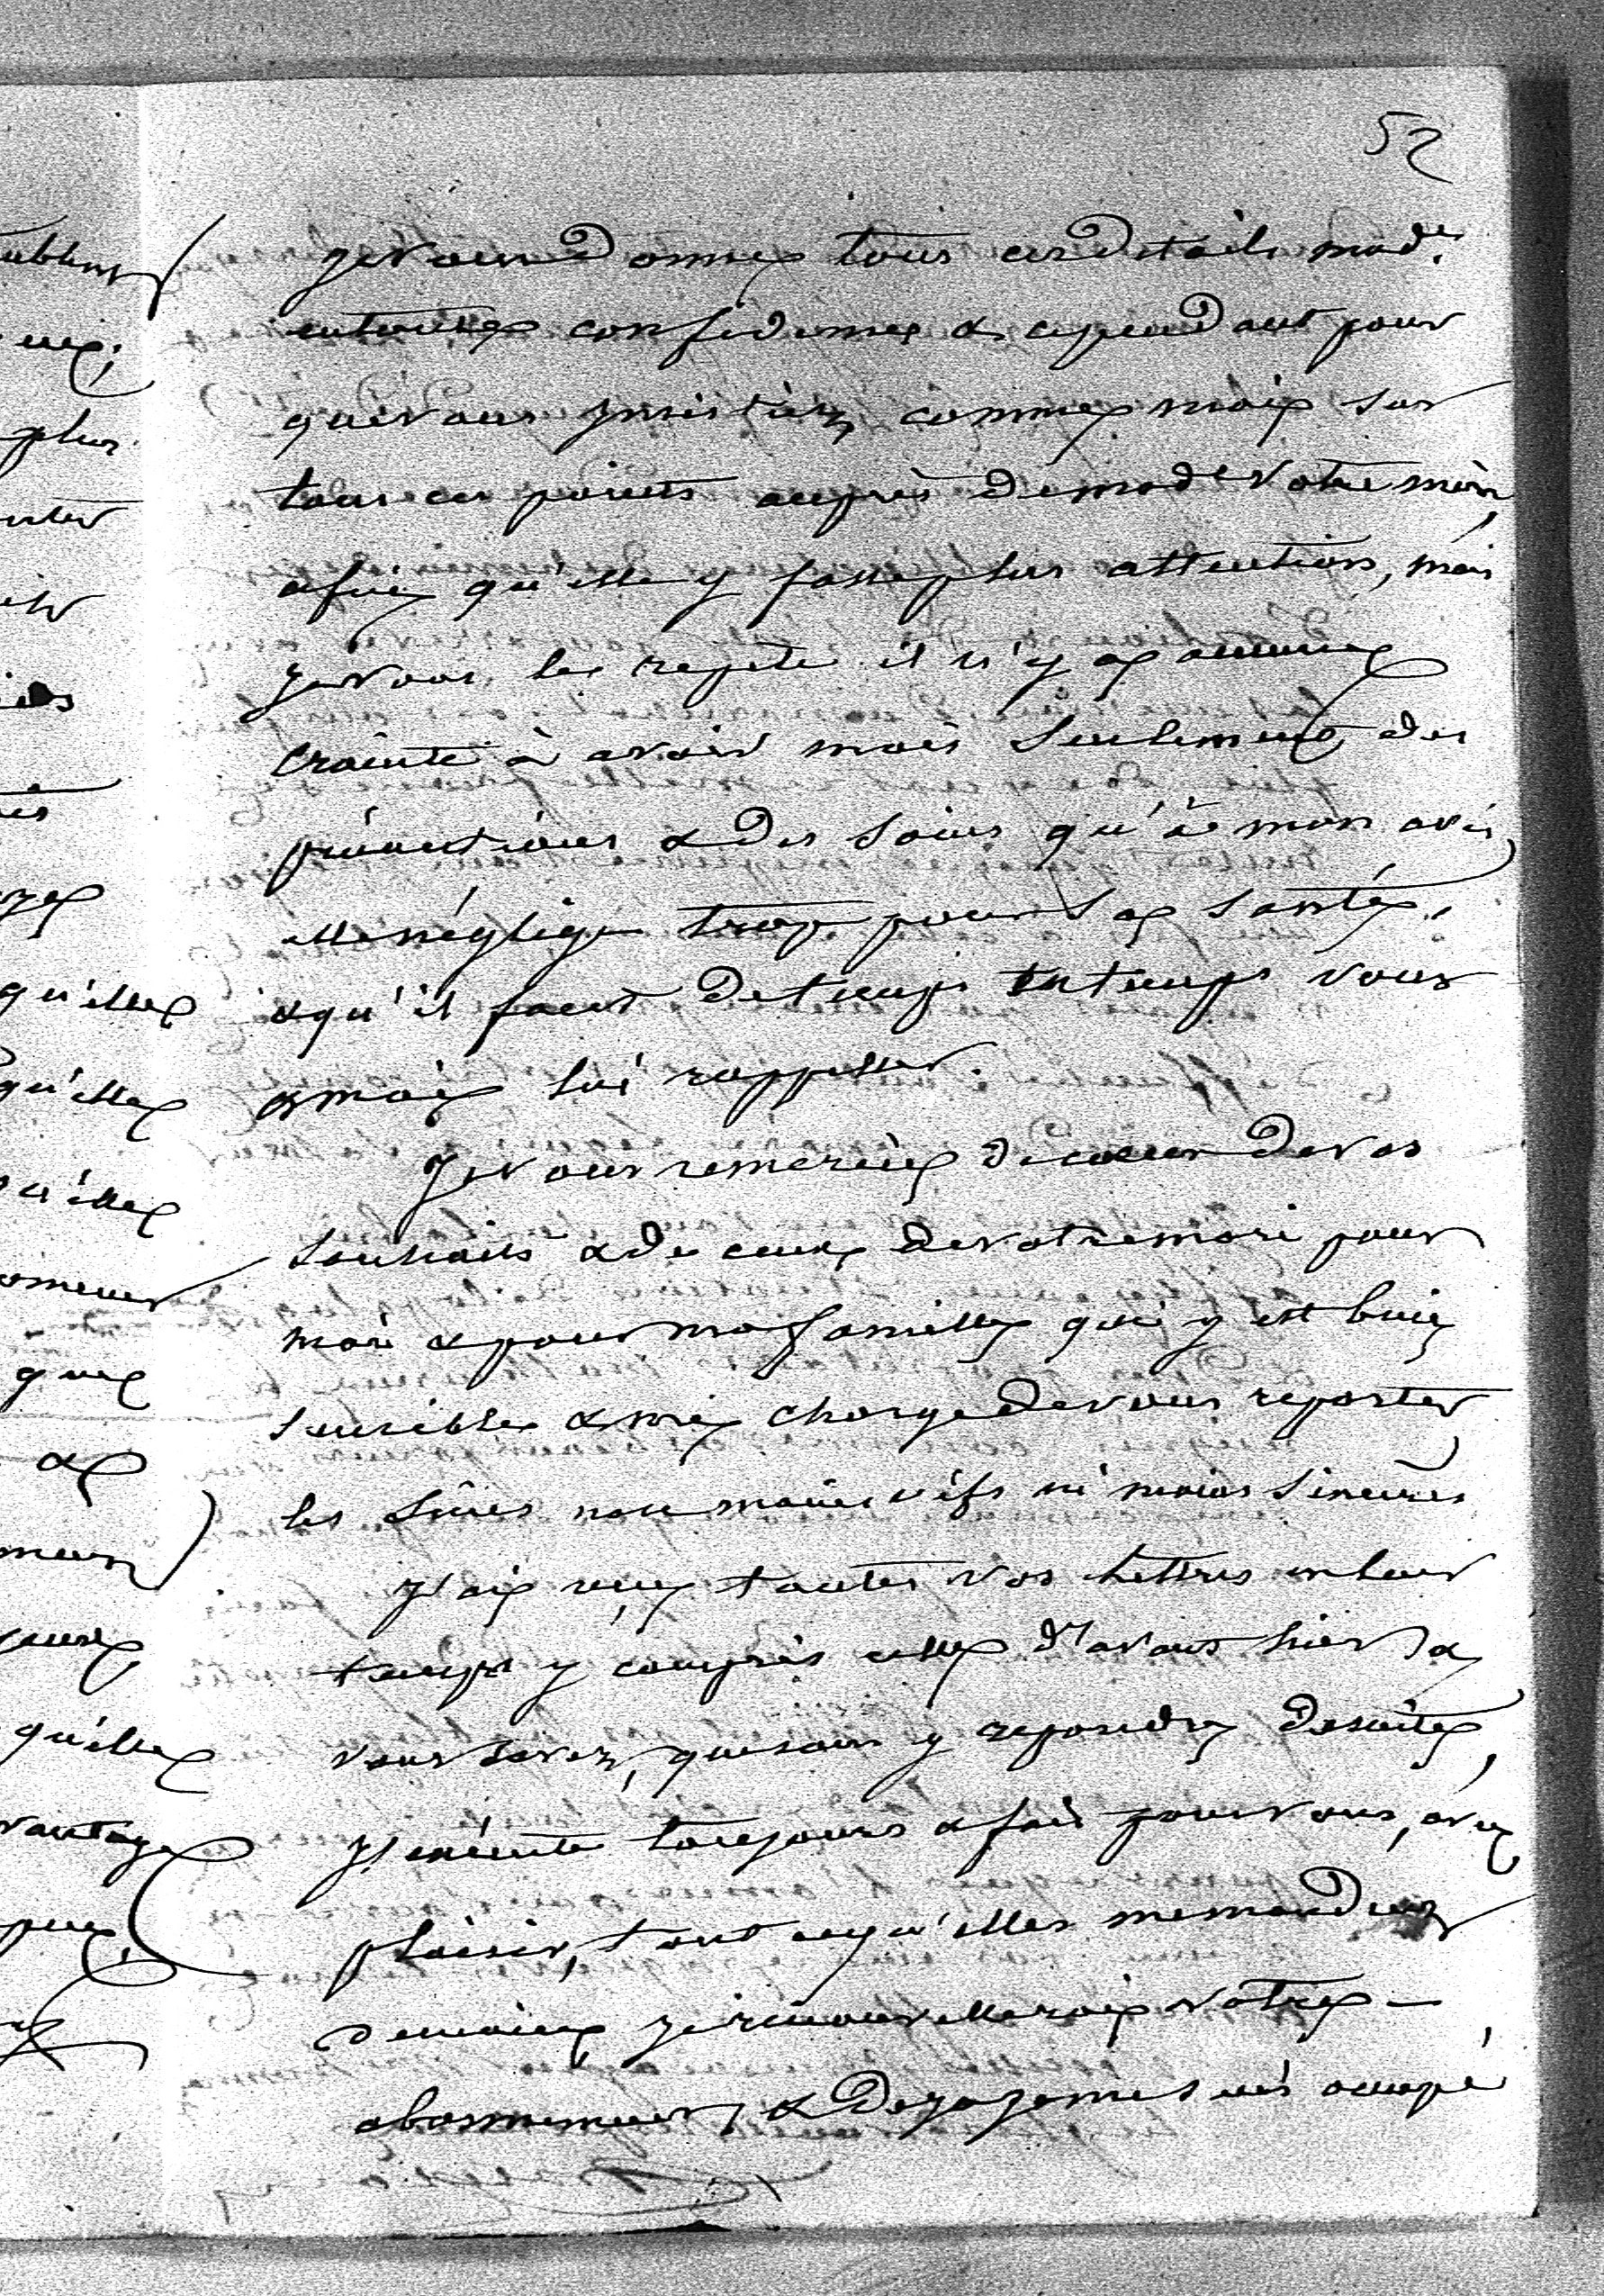 52
je vous donne tous ces details mad.e
en toute confidence & cependant pour
que vous insistiez comme moi sur
tous ces points auprès de mad.e votre mère,
afin qu'elle y fasse plus attention, mais
je vous le repete il n'y a aucune
crainte à avoir mais seulement des
précautions & des soins qu'à mon avis
elle néglige trop pour sa santé,
& qu'il faut de temps en temps vous
& moi lui rappeller.
Je vous remercie de coeur de vos
souhaits & de ceux de votre mari pour
moi & pour ma famille qui y est bien
sensible & me charge de vous reporter
les siens non moins vifs ni moins sinceres
J'ai reçu toutes vos lettres en leur
temps y compris celle d'avant hier &
vous savez, que sans y repondre de suite,
j'execute toujours & fais pour vous, avec
plaisir, tout ce qu'elles me mandent
demain je renouvellerai votre
abonnement, & deja je me suis occupé
ublier
plus
qu'elle
qu'elle
qu'elle
que
&
qu'elle
vantage